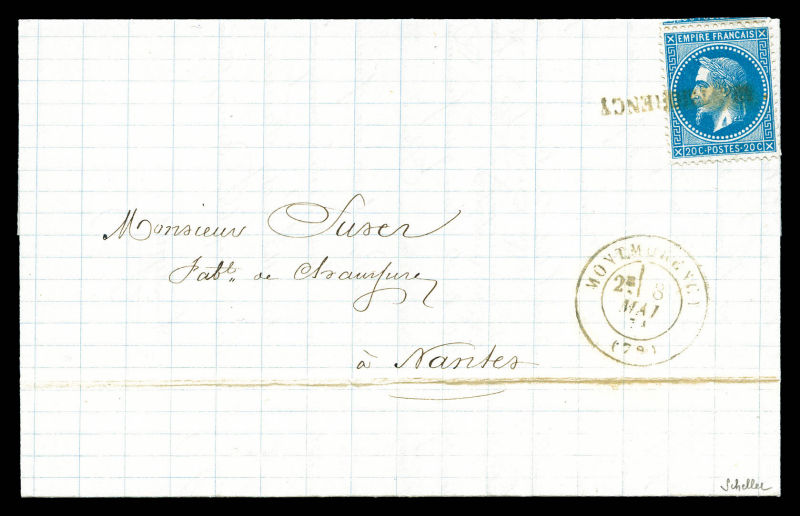 EMPIRE FRANCAIS
20 C·POSTES·20 C
Monsieur Suser
Fabt. de Chaussures
à Nantes
MONTMORENCY
2E 8
MAI
(72)
Scheller